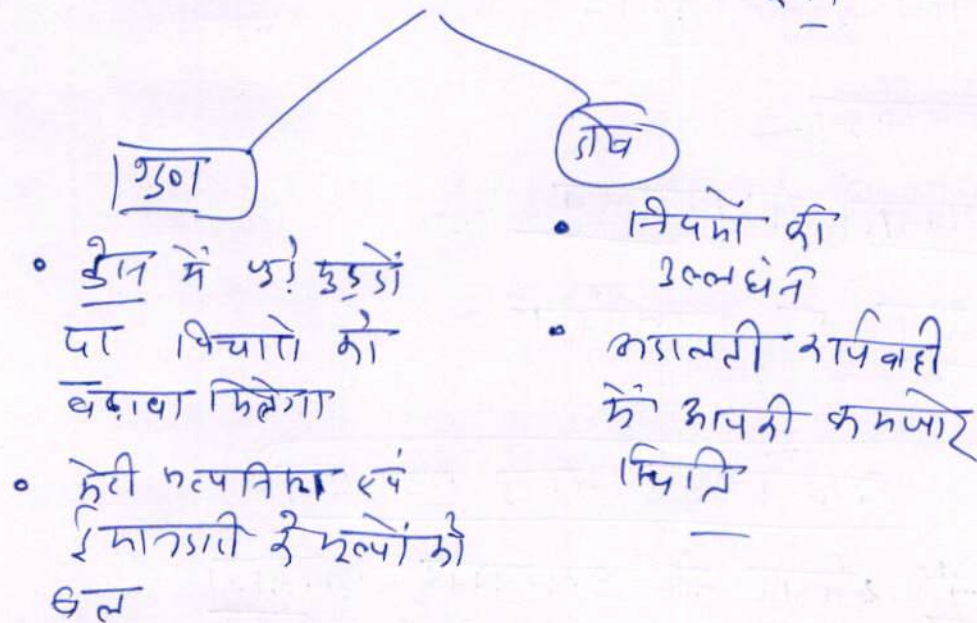 गुण
• देश में पड़े मुद्दों
पर विचारों को
बढ़ावा मिलेगा
• मेरी सत्यनिष्ठा एवं
ईमानदारी के मूल्यों को
बल
दोष
• नियमों की
उल्लघंन
• अदालती कार्यवाही
में आपकी कमजोर
स्थिति